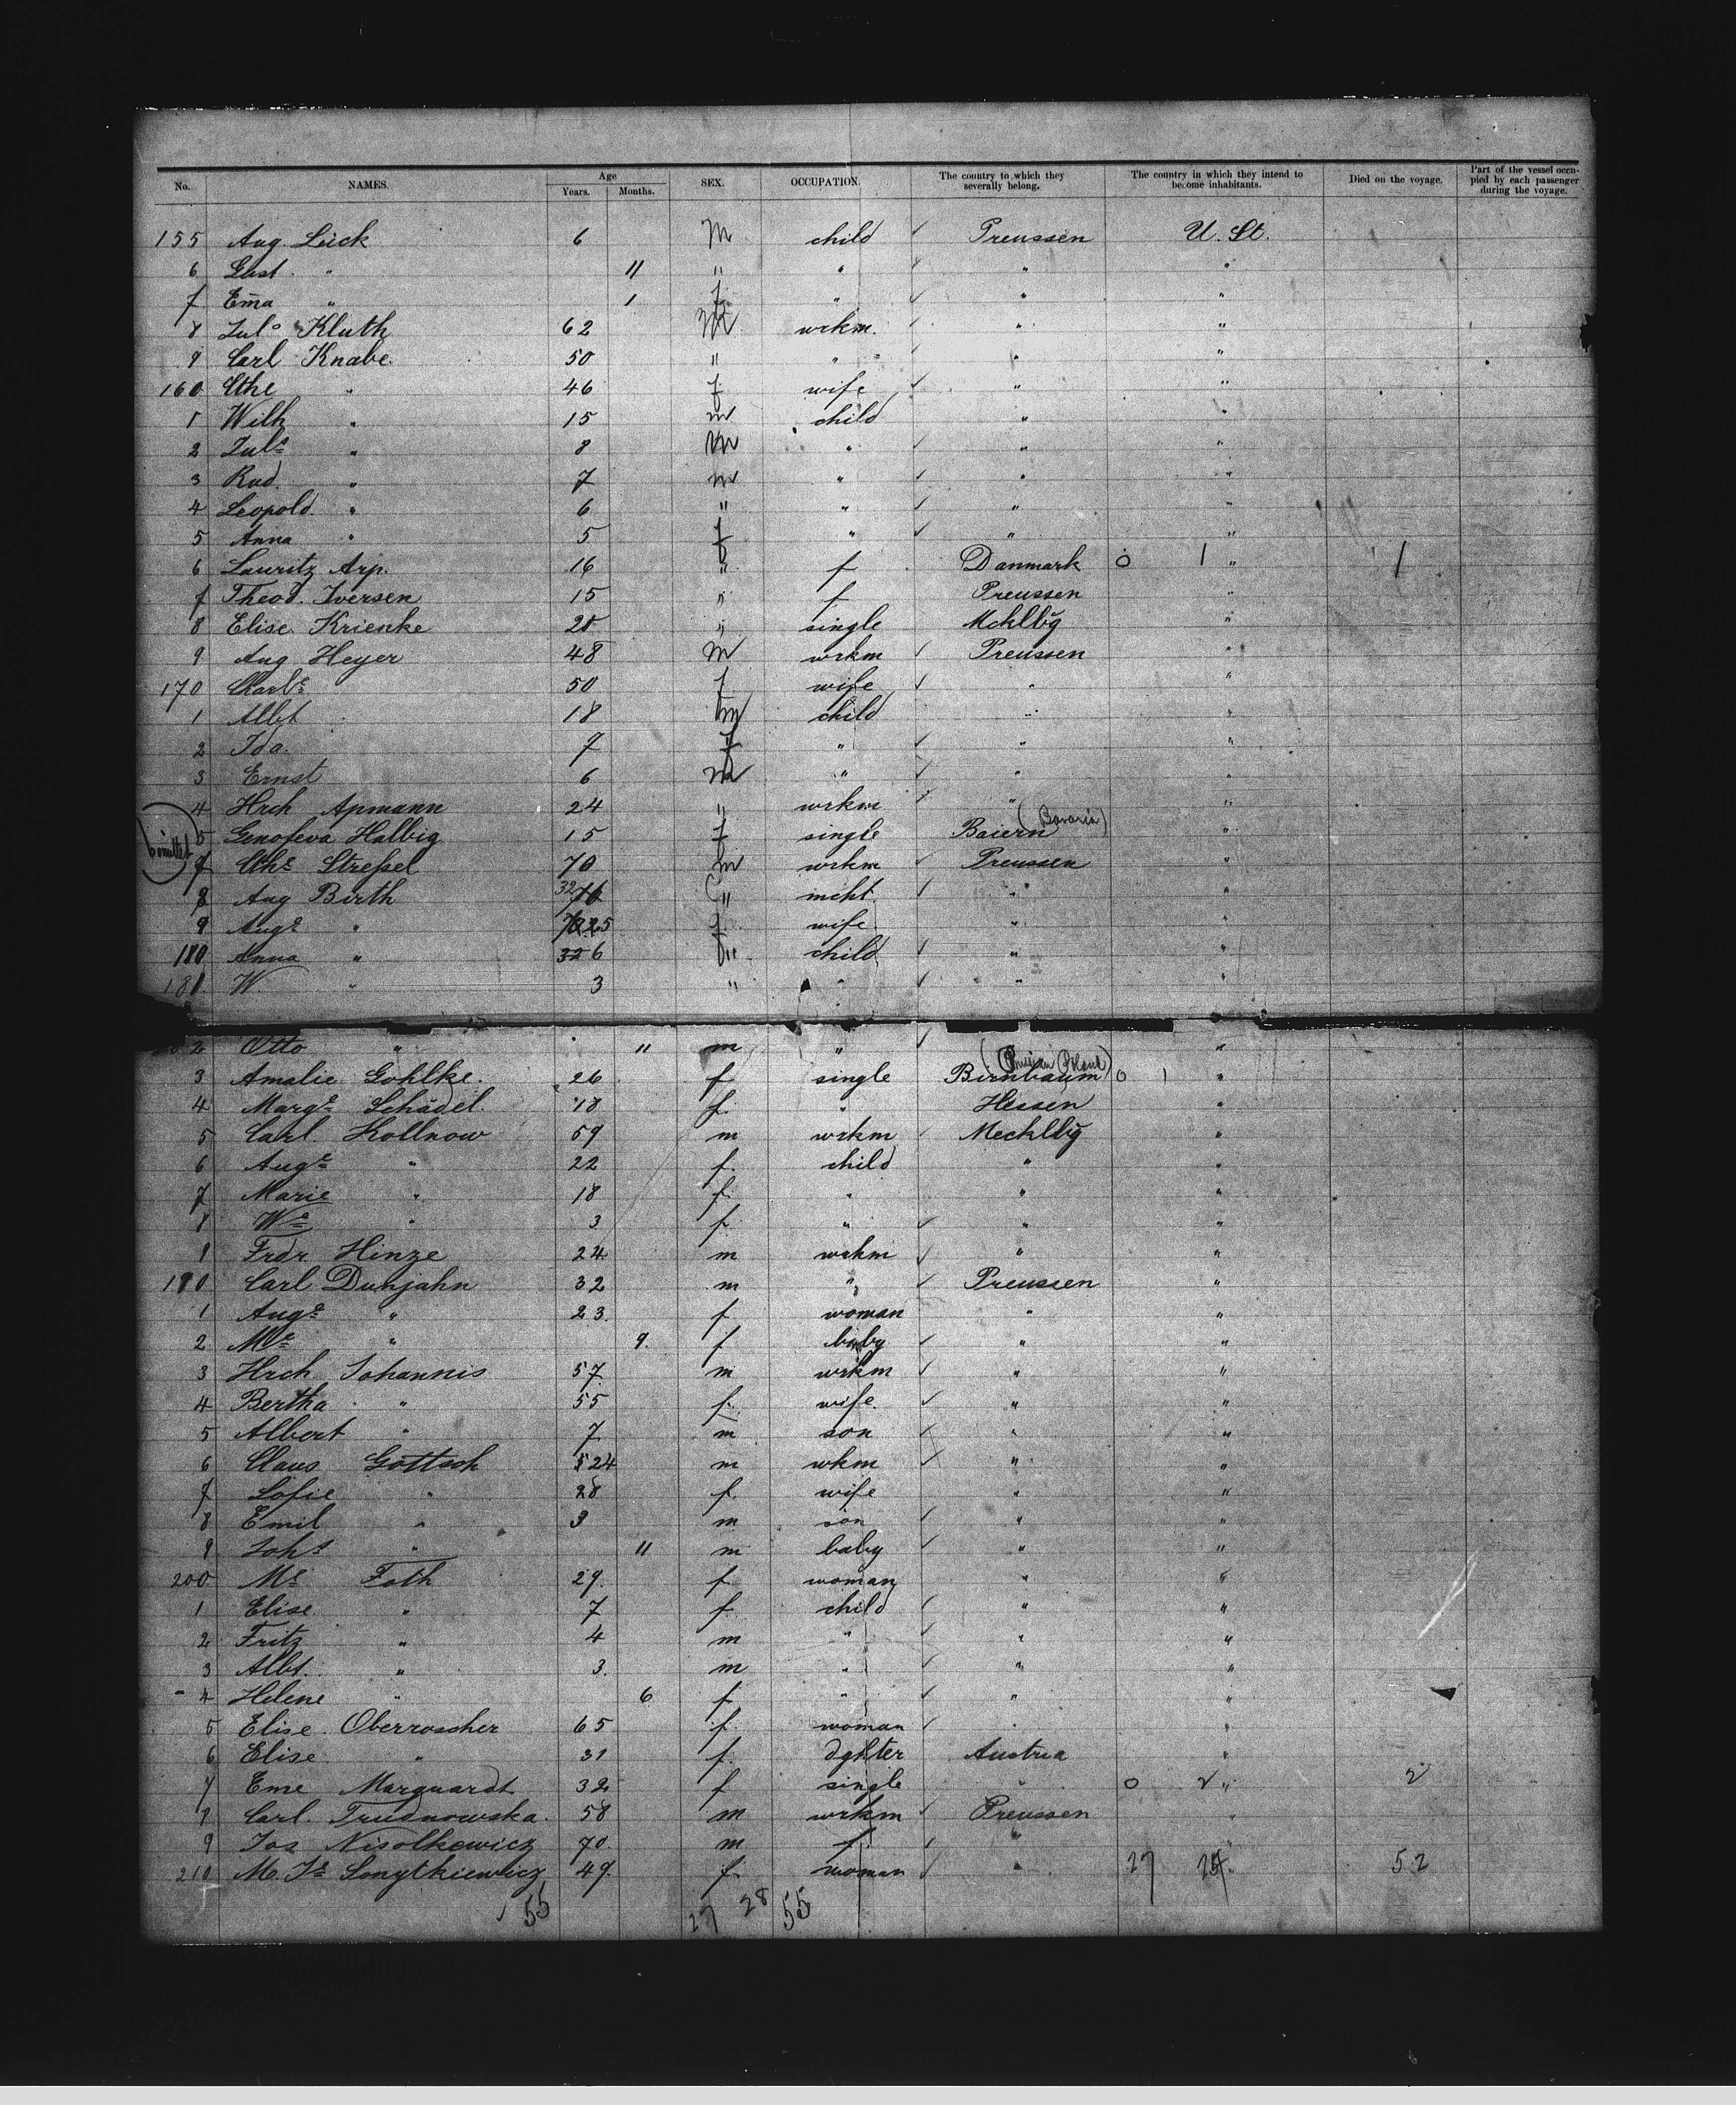 No. NAMES. Age Years. Months. SEX. OCCUPATION. The country to which they severally belong. The country in which they intend to become inhabitants. Died on the voyage. Part of the vessel occupied by each passenger during the voyage.
155 Aug. Lück 6 M child Preussen U. St.
6 Gust. " 11 " " " "
7 Em̄a " 1 f. " " "
8 Juls Kluth 62 M wrkm. " "
9 Carl Knabe. 50 " " " "
160 Cthe " 46 f wife " "
1 Wilh " 15 m child " "
2 Juls " 8 M " " "
3 Rud. " 7 m " " "
4 Leopold. " 6 " " " "
5 Anna " 5 f " " "
6 Lauritz Arp. 16 " f Danmark 0 1 " 1
7 Theod. Iversen 15 " f Preussen "
8 Elise Krienke " single Mcklbg "
9 Aug Heyer 48 M wrkm Preussen "
170 Charle 50 f wife " "
1 Albt 18 m child " "
2 Ida. 7 f " " "
3 Ernst 6 m " " "
4 Hrch Apmann 24 " wrkm " "
5 Genofeva Halbig 15 f single Baiern (Bavaria) "
(6 omitted)
7 Strefsel 70 m wrkm Preussen "
8 Aug Birth 32 " mcht. " "
9 Auge " 25 f wife. " "
180 Anna " 6 " child " "
181 W. " 3 " " " "
2 Otto " 11 m " "
3 Amalie Gohlke. 26 f single Birnbaum 0 1 "
4 Marge Schädel. 18 f. " Hessen "
5 Carl Kollnow 59 m wrkm Mecklbg "
6 Auge " 22 f. child " "
7 Marie " 18 f. " " "
8 We " 3 f. " " "
9 Frdr. Hinze 24 m wrkm " "
190 Carl Dunjahn 32 m " Preussen "
1 Auge " 23. f woman " "
2 Me " 9. f baby " "
3 Hrch Johannis 57 m wrkm " "
4 Bertha " 55 f. wife. " "
5 Albert " 7 m son " "
6 Claus Göttsch 24 m wkm " "
7 Sofie " 28 f. wife " "
8 Emil " 3 m son " "
9 Johs " 11 m baby " "
200 Me Foth 29. f woman " "
1 Elise " 7 f child " "
2 Fritz " 4 m " " "
3 Albt. " 3. m " " "
4 Helene " 6 f " " "
5 Elise. Oberroscher 65 f. woman " "
6 Elise " 31 f. dghter Austria "
7 Eme Marquardt 32 f single " 0 2 " 2
8 Carl. Trudnowska. 58 m wrkm Preussen "
9 Jos Nisolkewicz 70 m f. " "
210 M. Je Songtkiewicz 49. f. woman " 27 52
55 27 28 55